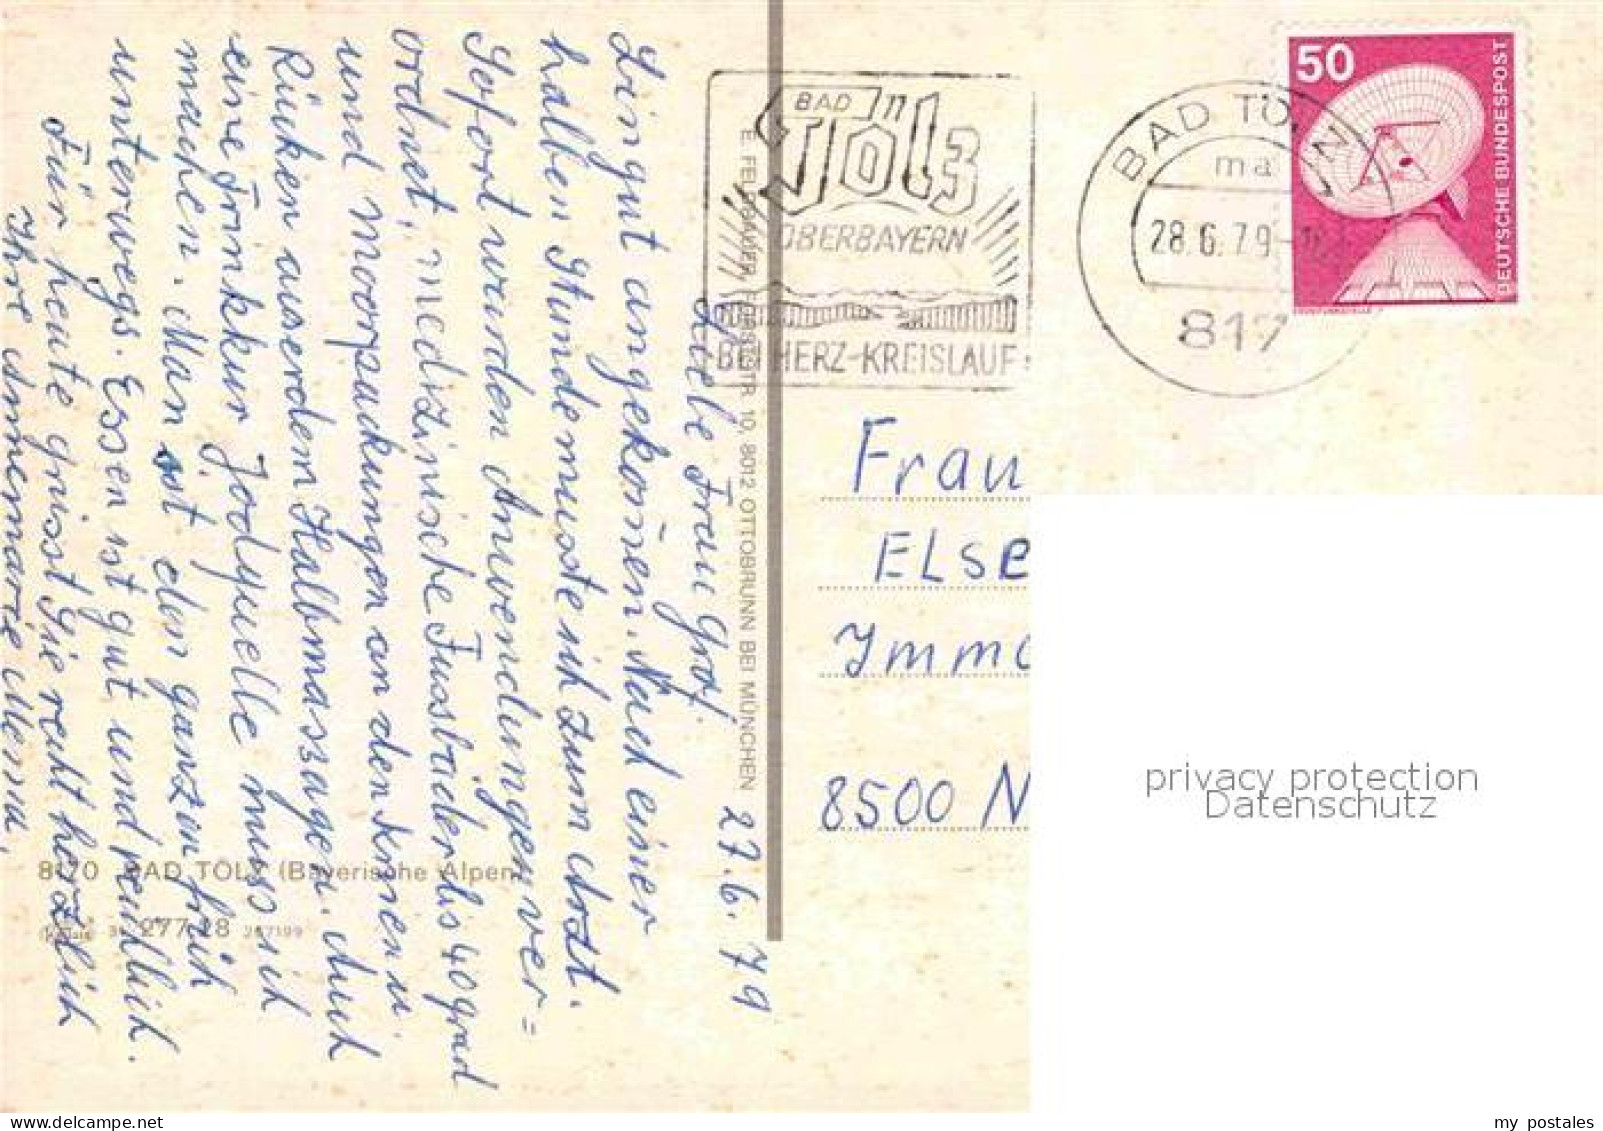 27.6.79
Liebe Frau Graf.
Bin gut angekom̄en. Nach einer
halben Stunde muste ich zum Arzt.
Sofort wurden Anwendungen ver=
ordnet, medizinische Fussbäder bis 40 grad
und moorpackungen an den Knien u.
Rücken auserdem Halbmassagen. Auch
eine Trinkkur Jodquelle muss ich
machen. Man ist den ganzen früh
unterwegs. Essen ist gut und reichlich.
Für heute grüsst Sie recht herzlich
Ihre Annemarie
8170 BAD TÖLZ (Bayerische Alpen)
277 28 267199
E. FELDBAUER, FORSTSTR. 10, 8012 OTTOBRUNN BEI MÜNCHEN
BAD
Tölz
OBERBAYERN
BEI HERZ-KREISLAUF
BAD TÖLZ
ma
28.6.79
817
50
DEUTSCHE BUNDESPOST
Frau
Else
Immo
8500 N
privacy protection
Datenschutz
my postales